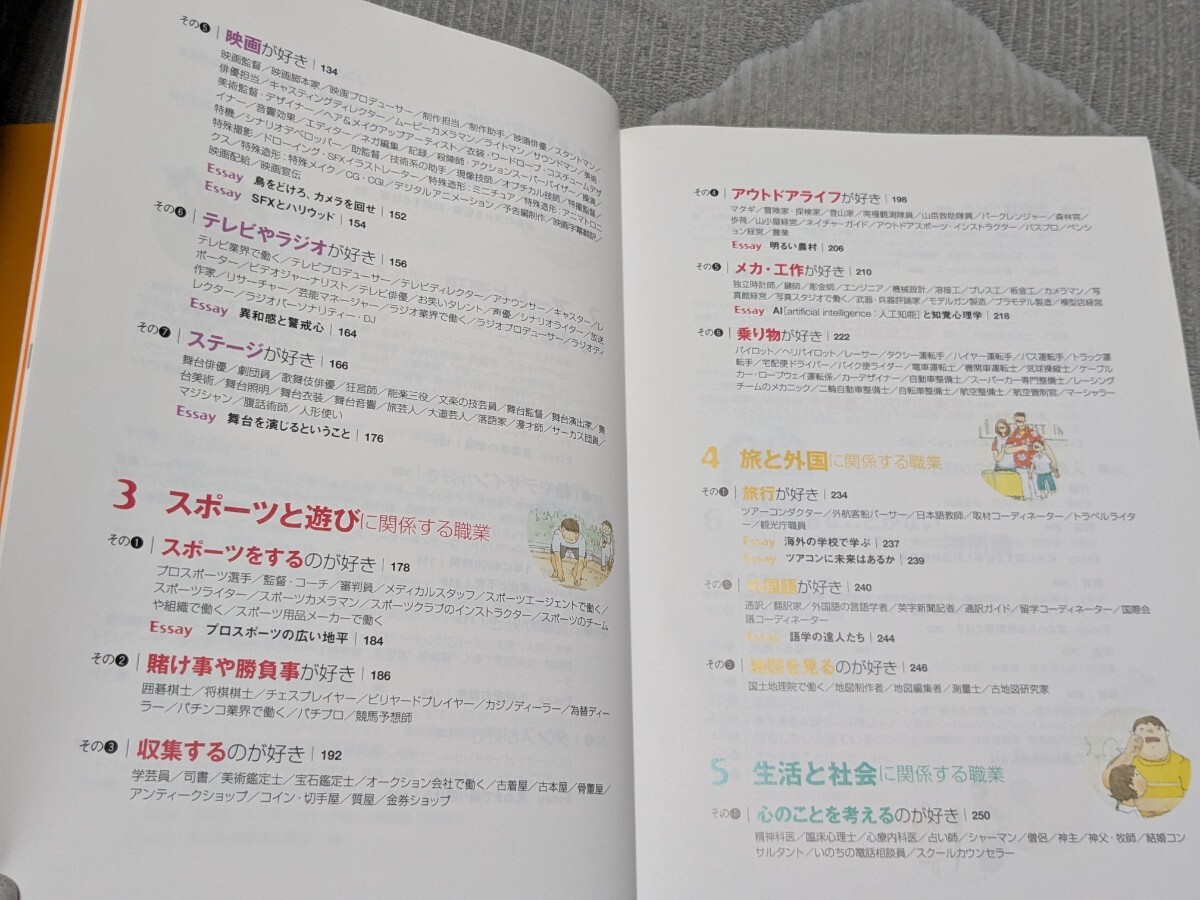 その❺ 映画が好き 134
映画監督／映画脚本家／映画プロデューサー／制作担当／制作助手／映画俳優／スタントマン／
俳優担当／キャスティングディレクター／ムービーカメラマン／ライトマン／サウンドマン／美術
美術監督・デザイナー／ヘア&メイクアップアーティスト／衣装・ワードローブ・コスチュームデザ
イナー／音響効果／エディター／ネガ編集／記録／殺陣師・アクションスーパーバイザー／操演／
特機／シナリオデベロッパー／助監督／技術系の助手／現像技師／オプチカル技師／特撮監督／
特殊撮影／ドローイング・SFXイラストレーター／特殊造形：ミニチュア／特殊造形：アニマトロニ
クス／特殊造形：特殊メイク／CG・CGI／デジタルアニメーション／予告編制作／映画字幕翻訳／
映画配給／映画宣伝
Essay 鳥をどけろ、カメラを回せ 152
Essay SFXとハリウッド 154
その❻ テレビやラジオが好き 156
テレビ業界で働く／テレビプロデューサー／テレビディレクター／アナウンサー／キャスター／レ
ポーター／ビデオジャーナリスト／テレビ俳優／お笑いタレント／声優／シナリオライター／放送
作家／リサーチャー／芸能マネージャー／ラジオ業界で働く／ラジオプロデューサー／ラジオディ
レクター／ラジオパーソナリティー・DJ
Essay 異和感と警戒心 164
その❼ ステージが好き 166
舞台俳優／劇団員／歌舞伎俳優／狂言師／能楽三役／文楽の技芸員／舞台監督／舞台演出家／舞
台美術／舞台照明／舞台衣装／舞台音響／旅芸人／大道芸人／落語家／漫才師／サーカス団員／
マジシャン／腹話術師／人形使い
Essay 舞台を演じるということ 176
3 スポーツと遊びに関係する職業
その❶ スポーツをするのが好き 178
プロスポーツ選手／監督・コーチ／審判員／メディカルスタッフ／スポーツエージェントで働く／
スポーツライター／スポーツカメラマン／スポーツクラブのインストラクター／スポーツのチーム
や組織で働く／スポーツ用品メーカーで働く
Essay プロスポーツの広い地平 184
その❷ 賭け事や勝負事が好き 186
囲碁棋士／将棋棋士／チェスプレイヤー／ビリヤードプレイヤー／カジノディーラー／為替ディー
ラー／パチンコ業界で働く／パチプロ／競馬予想師
その❸ 収集するのが好き 192
学芸員／司書／美術鑑定士／宝石鑑定士／オークション会社で働く／古着屋／古本屋／骨董屋／
アンティークショップ／コイン・切手屋／質屋／金券ショップ
その❹ アウトドアライフが好き 198
マタギ／冒険家・探検家／登山家／南極観測隊員／山岳救助隊員／パークレンジャー／森林官／
歩荷／山小屋経営／ネイチャーガイド／アウトドアスポーツ・インストラクター／バスプロ／ペンシ
ョン経営／農業
Essay 明るい農村 206
その❺ メカ・工作が好き 210
独立時計師／鍵師／彫金師／エンジニア／機械設計／溶接工／プレス工／板金工／カメラマン／写
真館経営／写真スタジオで働く／武器・兵器評論家／モデルガン製造／プラモデル製造／模型店経営
Essay AI[artificial intelligence：人工知能]と知覚心理学 218
その❻ 乗り物が好き 222
パイロット／ヘリパイロット／レーサー／タクシー運転手／ハイヤー運転手／バス運転手／トラック運
転手／宅配便ドライバー／バイク便ライダー／電車運転士／機関車運転士／気球操縦士／ケーブル
カー・ロープウェイ運転係／カーデザイナー／自動車整備士／スーパーカー専門整備士／レーシング
チームのメカニック／二輪自動車整備士／自転車整備士／航空整備士／航空管制官／マーシャラー
4 旅と外国に関係する職業
その❶ 旅行が好き 234
ツアーコンダクター／外航客船パーサー／日本語教師／取材コーディネーター／トラベルライタ
ー／観光庁職員
Essay 海外の学校で学ぶ 237
Essay ツアコンに未来はあるか 239
その❷ 外国語が好き 240
通訳／翻訳家／外国語の言語学者／英字新聞記者／通訳ガイド／留学コーディネーター／国際会
議コーディネーター
Essay 語学の達人たち 244
その❸ 地図を見るのが好き 246
国土地理院で働く／地図制作者／地図編集者／測量士／古地図研究家
5 生活と社会に関係する職業
その❶ 心のことを考えるのが好き 250
精神科医／臨床心理士／心療内科医／占い師／シャーマン／僧侶／神主／神父・牧師／結婚コン
サルタント／いのちの電話相談員／スクールカウンセラー